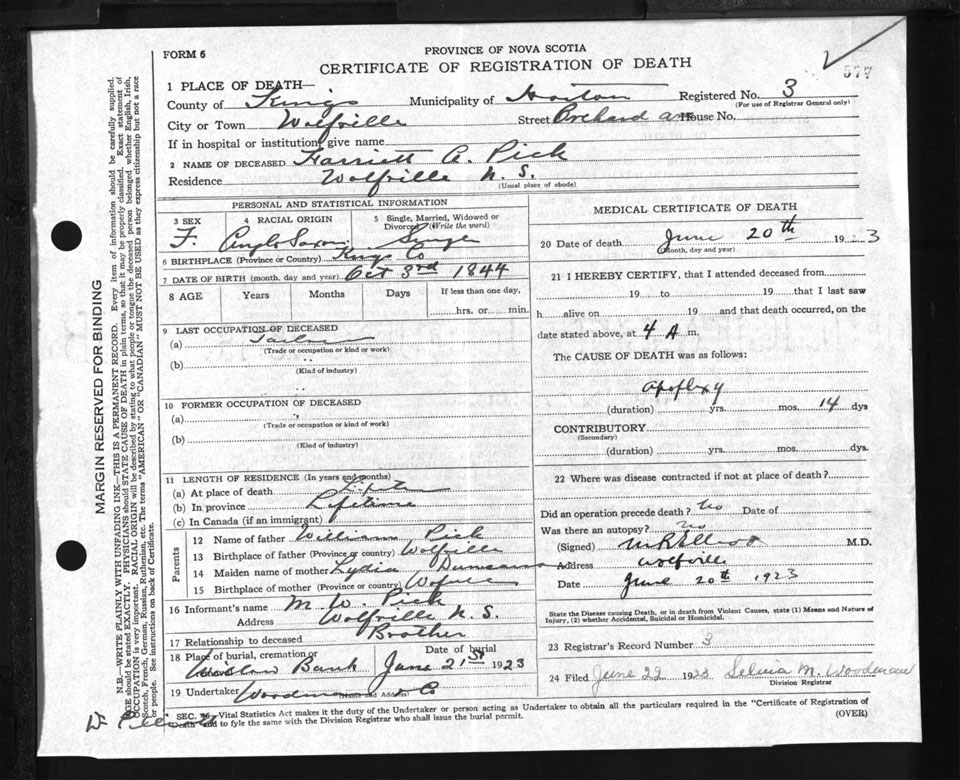 577
FORM 6
PROVINCE OF NOVA SCOTIA
CERTIFICATE OF REGISTRATION OF DEATH
1 PLACE OF DEATH—
County of Kings Municipality of Horton Registered No. 3
(For use of Registrar General only)
City or Town Wolfville Street Orchard ave House No.
If in hospital or institution, give name
2 NAME OF DECEASED Harriett A. Pick
Residence Wolfville N. S.
(Usual place of abode)
PERSONAL AND STATISTICAL INFORMATION
3 SEX 4 RACIAL ORIGIN 5 Single, Married, Widowed or Divorced (Write the word)
F. Anglo Saxon Single
6 BIRTHPLACE (Province or Country) Kings Co
7 DATE OF BIRTH (month, day and year) Oct 3rd 1844
8 AGE Years Months Days If less than one day,
hrs. or min.
9 LAST OCCUPATION OF DECEASED
(a)
(Trade or occupation or kind or work)
(b)
(Kind of industry)
10 FORMER OCCUPATION OF DECEASED
(a)
(Trade or occupation or kind of work)
(b)
(Kind of industry)
11 LENGTH OF RESIDENCE (In years and months)
(a) At place of death
(b) In province Lifetime
(c) In Canada (if an immigrant)
Parents
12 Name of father William Pick
13 Birthplace of father (Province or country) Wolfville
14 Maiden name of mother Lydia Duncanson
15 Birthplace of mother (Province or country) Wolfville
16 Informant's name M. W. Pick
Address Wolfville N. S.
17 Relationship to deceased Brother
18 Place of burial, cremation or Date of burial
Willow Bank June 21st 1923
19 Undertaker Woodman & Co
(Name and Address)
MEDICAL CERTIFICATE OF DEATH
20 Date of death June 20th 1923
(Month, day and year)
21 I HEREBY CERTIFY, that I attended deceased from
19 to 19 that I last saw
h alive on 19 and that death occurred, on the
date stated above, at 4 A m.
The CAUSE OF DEATH was as follows:
Apoplexy
(duration) yrs. mos. 14 dys
CONTRIBUTORY
(Secondary)
(duration) yrs. mos. dys.
22 Where was disease contracted if not at place of death?
Did an operation precede death? No Date of
Was there an autopsy? No
(Signed) M R Elliott M.D.
Address Wolfville
Date June 20th 1923
State the Disease causing Death, or in death from Violent Causes, state (1) Means and Nature of
Injury, (2) whether Accidental, Suicidal or Homicidal.
23 Registrar's Record Number 3
24 Filed June 22 1923 Selina M. Woodman
Division Registrar
* SEC. Vital Statistics Act makes it the duty of the Undertaker or person acting as Undertaker to obtain all the particulars required in the "Certificate of Registration of
Death" and to fyle the same with the Division Registrar who shall issue the burial permit. (OVER)
MARGIN RESERVED FOR BINDING
N.B.—WRITE PLAINLY WITH UNFADING INK—THIS IS A PERMANENT RECORD. Every item of information should be carefully supplied.
AGE should be stated EXACTLY. PHYSICIANS should STATE CAUSE OF DEATH in plain terms, so that it may be properly classified. Exact statement of
OCCUPATION is very important. RACIAL ORIGIN will be described by stating to what people or tongue the deceased person belonged whether English, Irish,
Scotch, French, German, Russian, Ruthenian, etc. The terms "AMERICAN" OR "CANADIAN" MUST NOT BE USED as they express citizenship but not a race
or people. See instructions on back of Certificate.